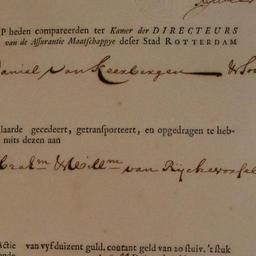 P heden compareerden ter Kamer der DIRECTEURS
van de Assurantie Maatschappye deser Stad ROTTERDAM
Daniel van Keerbergen & So
laarde gecedeert, getransporteert, en opgedragen te heb-
mits dezen aan
& Willm van Ryckevorsel
Actie van vyf duizent guld. contant geld van 20 stuiv. 't stuk